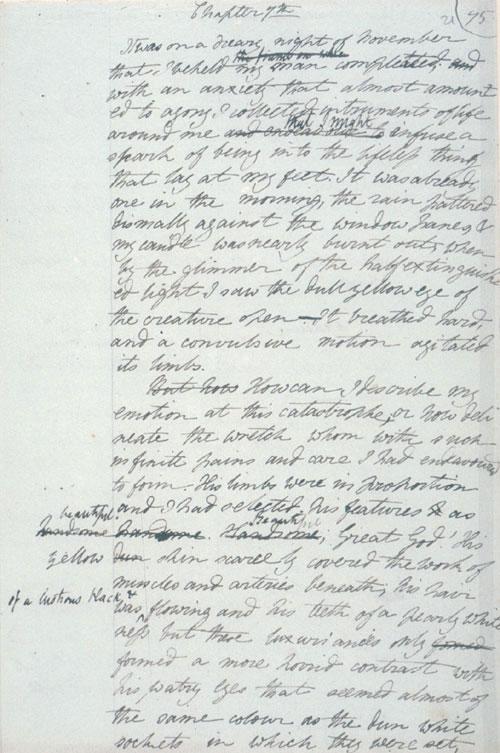 Chapter 7th
21 95
It was on a dreary night of November
the frame on whic
that I beheld my man compleated; and
with an anxiety that almost amount
ed to agony, I collected instruments of life
that I might
around me and endeavour to infuse a
spark of being into the lifeless thing
that lay at my feet. It was already
one in the morning, the rain pattered
dismally against the window panes, &
my candle was nearly burnt out, when
by the glimmer of the half extinguish
ed light I saw the dull yellow eye of
the creature open. It breathed hard,
and a convulsive motion agitated
its limbs.
But how How can I describe my
emotion at this catastrophe, or how deli
neate the wretch whom with such
infinite pains and care I had endeavoured
to form. His limbs were in proportion
and I had selected his features as
beautiful. Beautiful
handsome handsome. Handsome; Great God! His
yellow dun skin scarcely covered the work of
muscles and arteries beneath; his hair
of a lustrous black, &
was flowing and his teeth of a pearly white
ness but these luxuriances only formed
formed a more horrid contrast with
his watry eyes that seemed almost of
the same colour as the dun white
sockets in which they were set